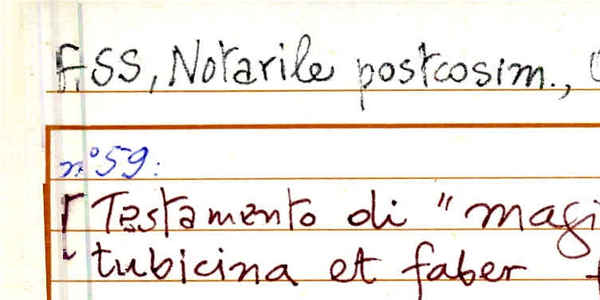 F.SS, Notarile postcosim.,
n° 59:
[Testamento di "magi
tubicina et faber